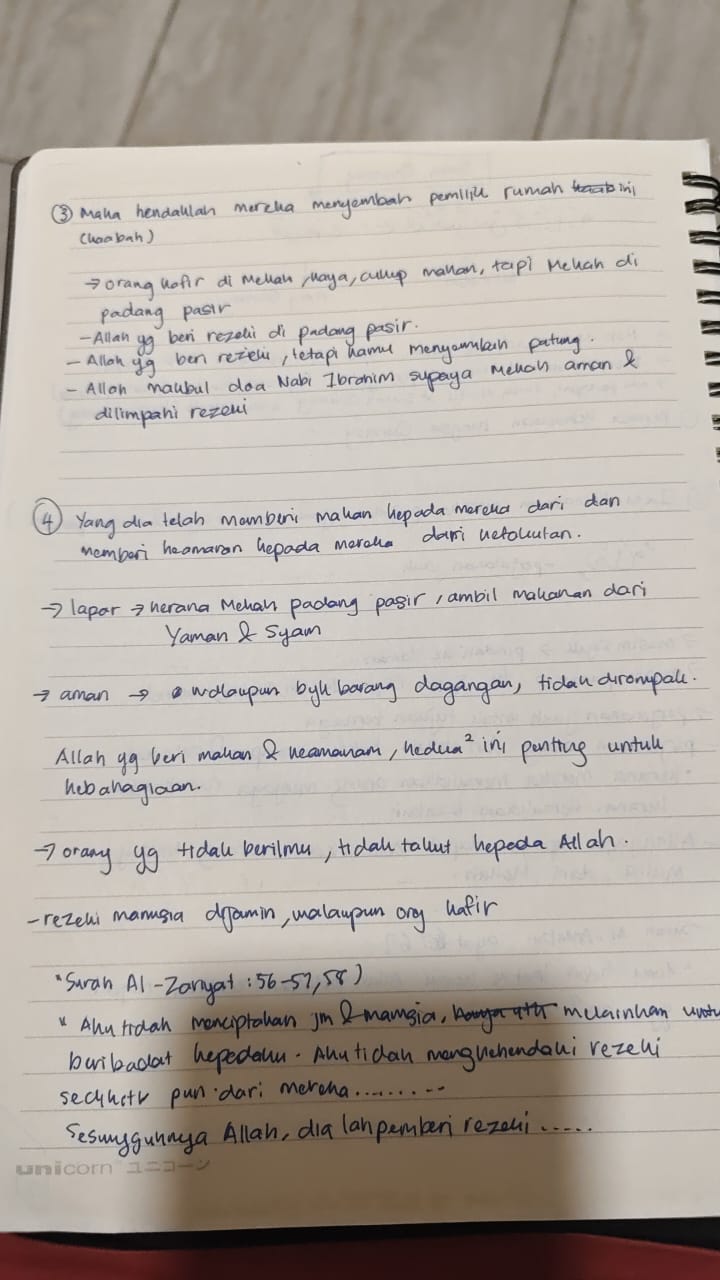 ③ Maka hendaklah mereka menyembah pemilik rumah ini,
(kaabah)
→ orang kafir di Mekah, kaya, cukup makan, tapi Mekah di
padang pasir
- Allah yg beri rezeki di padang pasir.
- Allah yg beri rezeki, tetapi kamu menyembah patung.
- Allah makbul doa Nabi Ibrahim supaya Mekah aman &
dilimpahi rezeki
④ Yang dia telah memberi makan kepada mereka dari dan
memberi keamanan kepada mereka dari ketakutan.
→ lapar → kerana Mekah padang pasir, ambil makanan dari
Yaman & Syam
→ aman → walaupun byk barang dagangan, tidak dirompak.
Allah yg beri makan & keamanan, kedua² ini penting untuk
kebahagiaan.
→ orang yg tidak berilmu, tidak takut kepada Allah.
- rezeki manusia dijamin, walaupun org kafir
"Surah Al-Zariyat : 56-57, 58)
" Aku tidak menciptakan jin & manusia, melainkan untu
beribadat kepadaku. Aku tidak menghendaki rezeki
sedikit pun dari mereka.........
Sesungguhnya Allah, dia lah pemberi rezeki .....
unicorn ユニコーン